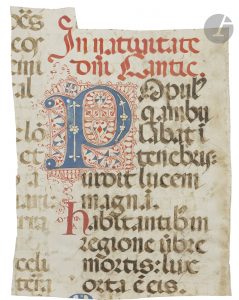 celi
In natiuitate
dñi Cantic
Populꝰ
q̃ ambu
labat ĩ
tenebris
uidit lucem
magnã.
habitantibꝰ in
regione ũbre
mortis: lux
orta ẽ eis.